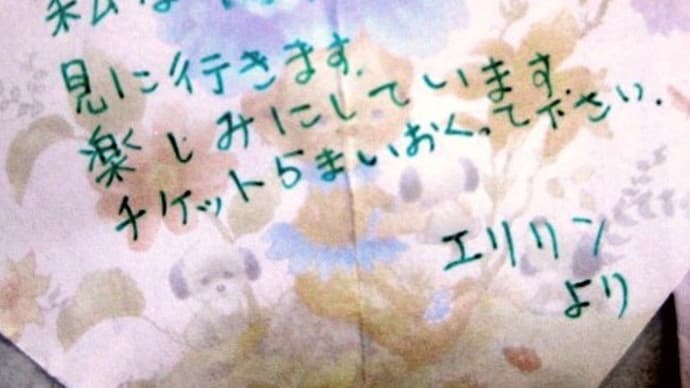 私は
見に行きます.
楽しみにしています.
チケット5まいおくって下さい.
エリリン
より